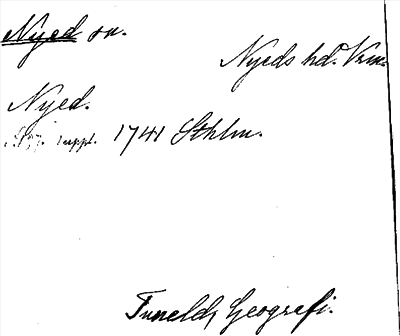 Nyed sn.
Nyeds hd. Vrm.
Nyed.
suppl. 1741 Sthlm.
Tunelds Geografi.